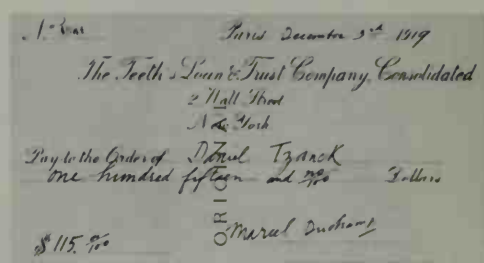 Paris December 3rd 1919
The Teeth's Loan & Trust Company, Consolidated
2 Wall Street
New York
Pay to the Order of Daniel Tzanck
one hundred fifteen and no/100 Dollars
ORIGI
$115. no/100 Marcel Duchamp